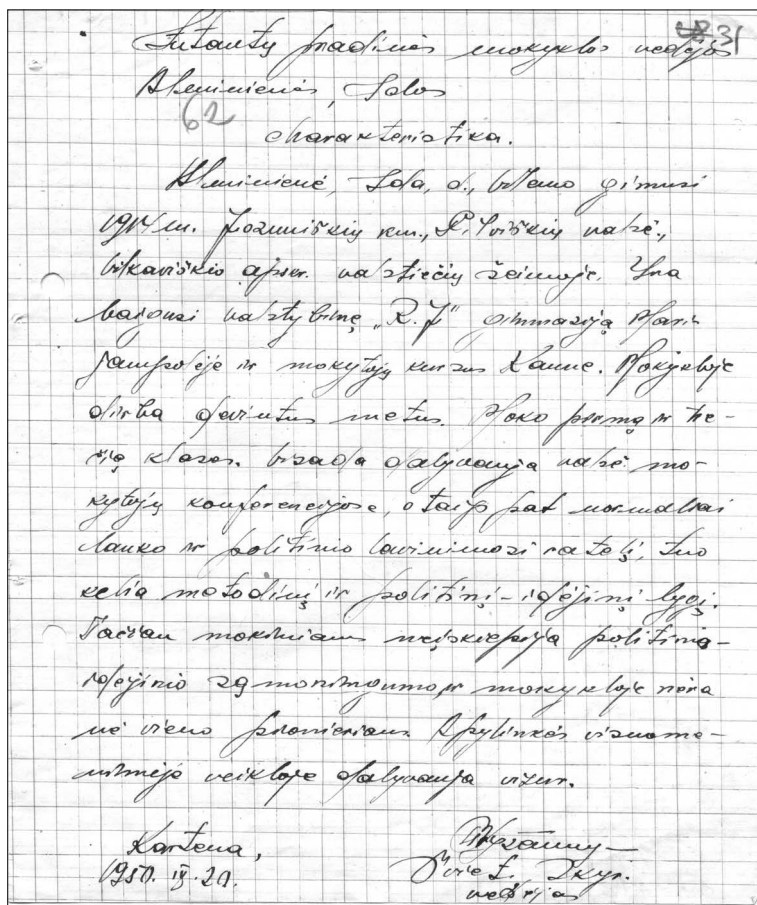 31
Šutautų pradinės mokyklos vedėjos
Aleminienės, Solos
62
charakteristika.
Aleminienė, Sola, d., Vilemo gimusi
1914 m. km., Pilviškių valsč.,
Vilkaviškio apskr. valstiečių šeimoje. Yra
baigusi valstybinę „R.J" gimnaziją Mari-
jampolėje ir mokytojų kursus Kaune. Mokykloje
dirba devintus metus. Moko pirmą ir tre-
čią klases. Visada dalyvauja valsč. mo-
kytojų konferencijose, o taip pat normaliai
lanko ir politinio lavinimosi ratelį, tuo
kelia metodinį ir politinį-idėjinį lygį.
Tačiau mokiniams neįskiepija politinio-
idėjinio sąmoningumo, ir mokykloje nėra
nė vieno pionieriaus. Apylinkės visuome-
ninėje veikloje dalyvauja visur.
Kartena,
1950. IX. 21.
Šviet. Skyr.
vedėjas